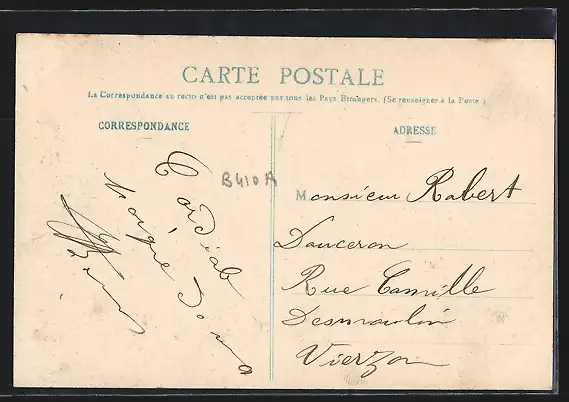 CARTE POSTALE
La Correspondance au recto n'est pas acceptée par tous les Pays Etrangers. (Se renseigner à la Poste.)
CORRESPONDANCE
ADRESSE
B410A
Cordial
Monsieur Robert
Douceron
Rue Camille
Desmoulin
Vierzon